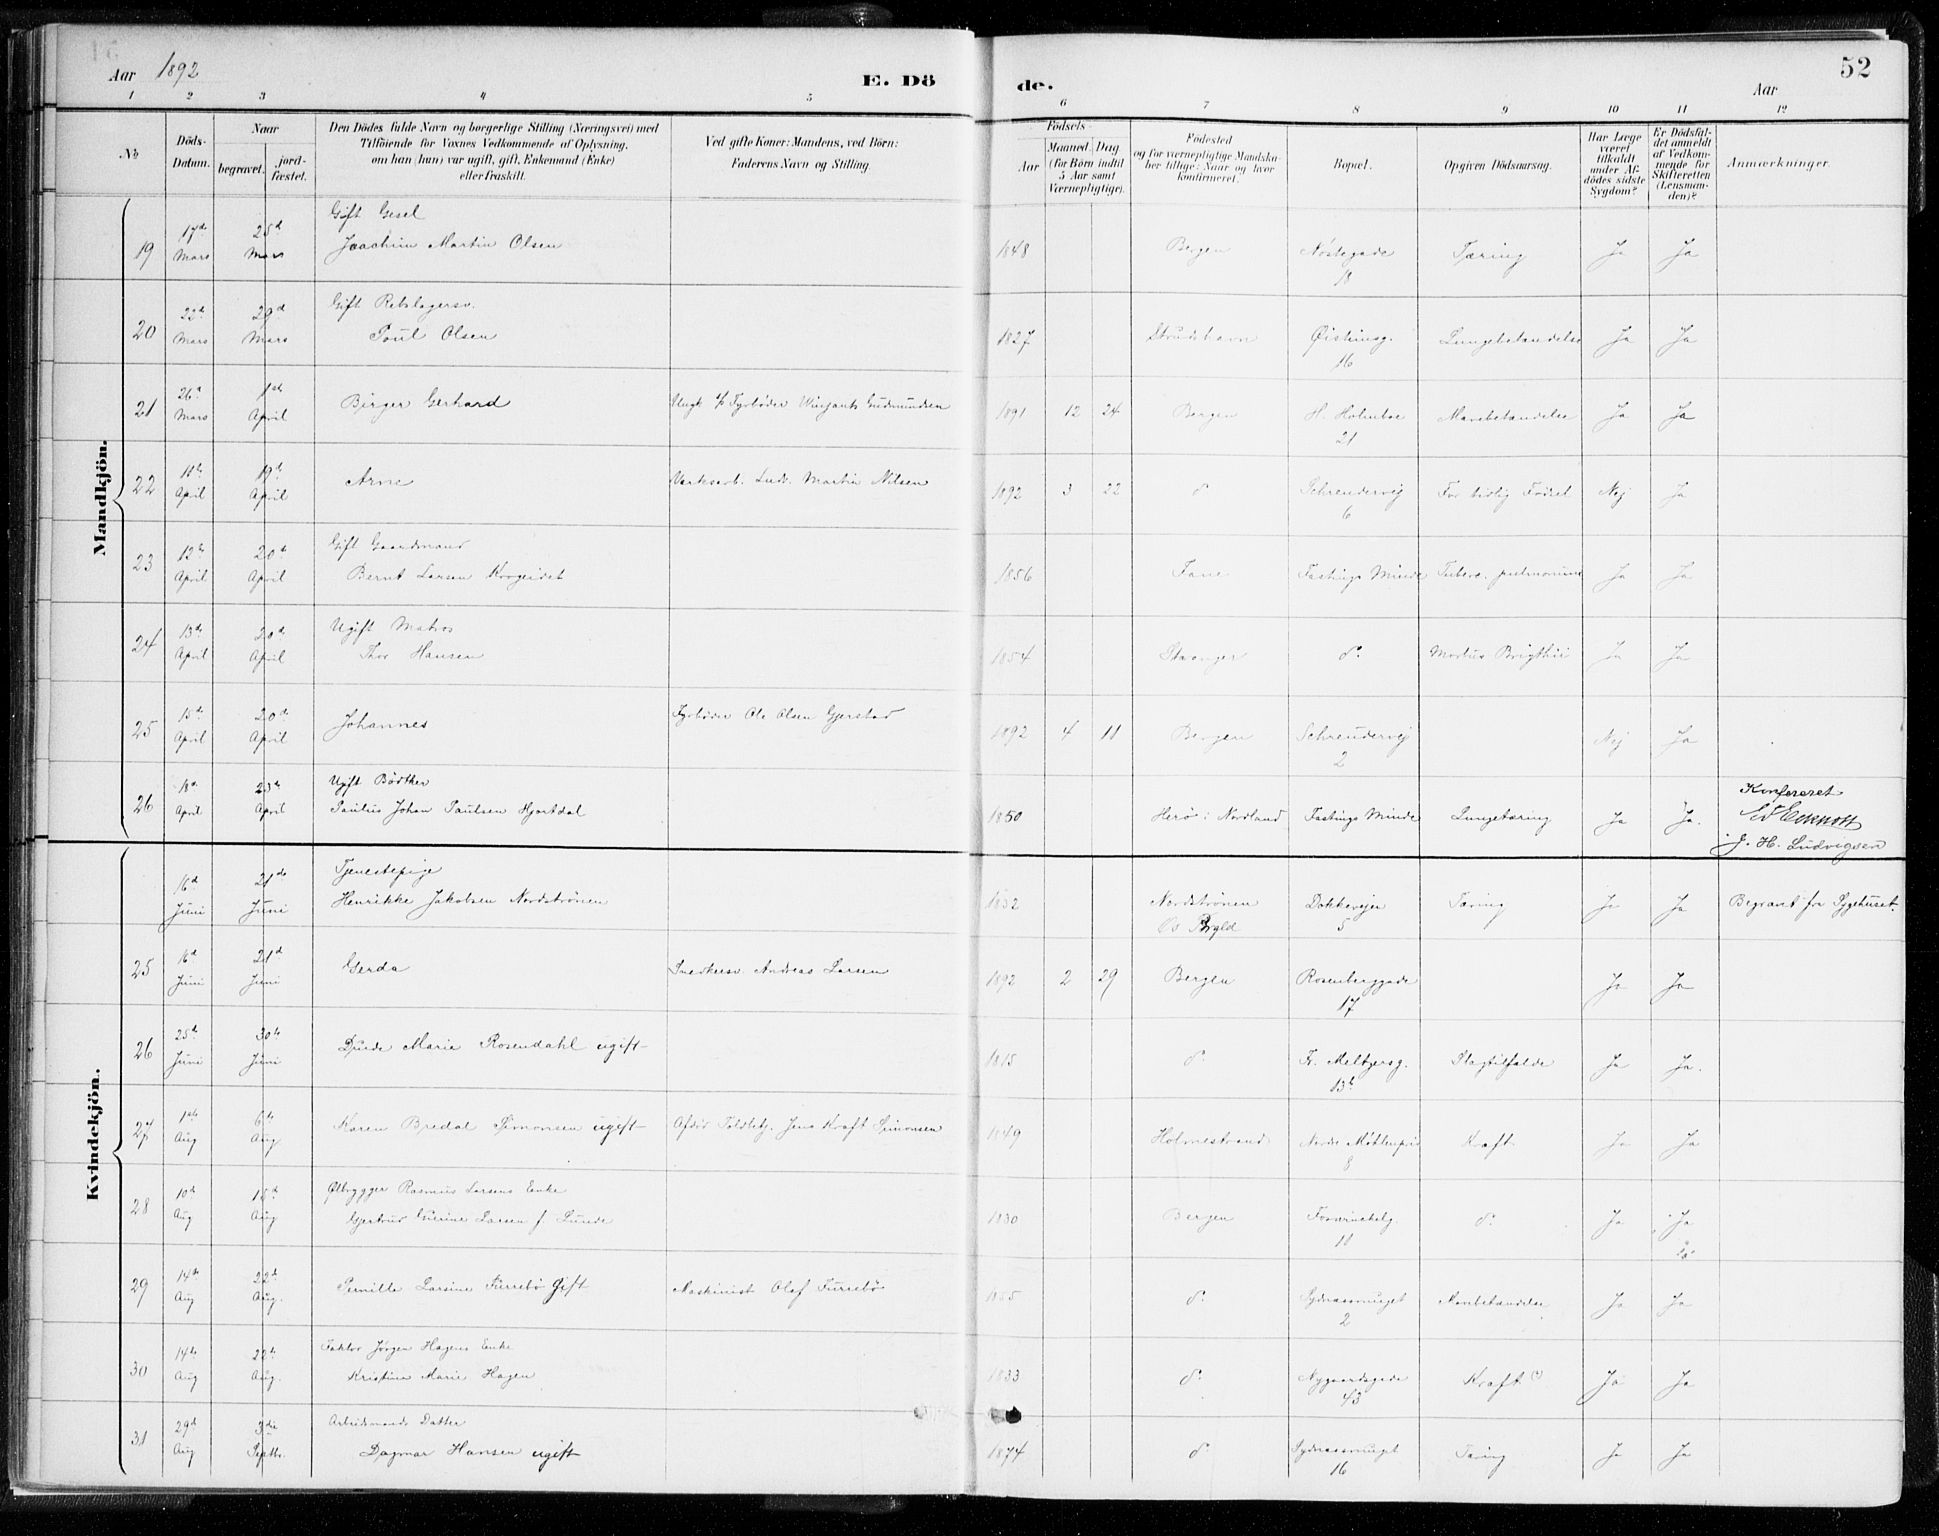 Aar 1892
E. Dö
de.
Aar
52
1 2 3 4 5 6 7 8 9 10 11 12
No
Döds-Datum.
Naar
begravet.
jord-fæstet.
Den Dödes fulde Navn og borgerlige Stilling (Næringsvei) med
Tilföiende for Voxnes Vedkommende af Oplysning,
om han (hun) var ugift, gift, Enkemand (Enke)
eller fraskilt.
Ved gifte Koner: Mandens, ved Börn:
Faderens Navn og Stilling.
Födsels-
Aar
Maaned Dag
(for Börn indtil
5 Aar samt
Værnepligtige).
Födested
og for værnepligtige Mandska-
ber tillige: Naar og hvor
konfirmeret.
Bopæl.
Opgiven Dödsaarsag.
Har Læge
været
tilkaldt
under Af-
dödes sidste
Sygdom?
Er Dödsfal-
det anmeldt
af Vedkom-
mende for
Skifteretten
(Lensman-
den)?
Anmærkninger.
Mandkjön.
19 17de Mars 25de Mars Gift
Joachim Martin Olsen 1848 Bergen Nøstegade 18 Tæring Ja Ja
20 22de Mars 29de Mars Gift Rebslagersv.
Poul Olsen 1827 Strudshavn Øisteinsg. 16 Lungebetændelse Ja Ja
21 26de Mars 1ste April Birger Gerhard Fyrbøder Gudmundsen 1891 12 24 Bergen H. Holmboe 21 Mavebetændelse Ja Ja
22 11te April 19de April Arne Værksarb. Ludv. Martin Nilsen 1892 3 22 do Schreudervej 6 For tidlig Fødsel Nej Ja
23 12te April 20de April Gift Gaardmand
Bernt Larsen Krogeidet 1856 Fane Fastings Minde Tuberc. pulmonum Ja Ja
24 13de April 20de April Ugift Matros
Thor Hansen 1854 Stavanger do Morbus Brigthii Ja Ja
25 15de April 20de April Johannes Fyrbøder Ole Olsen Gjerstad 1892 4 11 Bergen Schreudervej 2 Nej Ja
26 18de April 23de April Ugift Bødtker
Paulus Johan Paulsen Hjortdal 1850 Herø i Nordland Fastings Minde Lungetæring Ja Ja.
Konfereret
J. H. Ludvigsen
Kvindekjön.
16de Juni 21de Juni Tjenestepige
Henrikke Jakobsen Nordstrønen 1832 Nordstrønen Os Dokkevejen 5 Tæring Ja Ja Begravet fra Sygehuset.
25 16de Juni 21de Juni Gerda Snedkersv. Andreas Larsen 1892 2 29 Bergen Rosenberggade 17 Ja Ja
26 25de Juni 30te Juni Marie Rosendahl ugift 1815 do Fr. Meltzersg. 13b Slagtilfælde Ja Ja.
27 1ste Aug 6te Aug Karen Bredal Simonsen ugift Afdød Toldbtj. Jens Kraft Simonsen 1849 Holmestrand Nordre 8 Kræft Ja Ja
28 10de Aug 15de Aug Ølbrygger Rasmus Larsens Enke
Gjertrud Larsen f. Lunde 1830 Bergen Forsvinchelg. 10 do Ja Ja
29 14de Aug 22de Aug. Pernille Larsine Furrebø Gift Maskinist Olaf Furrebø 1855 do Sydnæssmuget 2 Mavebetændelse Ja Ja
30 14de Aug 22de Aug. Faktor Jørgen Hagens Enke
Kristine Marie Hagen 1833 do Nygaardsgade 43 Kræft (?) Ja Ja
31 29de Aug 3die Septbr. Arbeidsmands Datter
Dagmar Hansen ugift 1874 do Sydnæssmuget 16 Tæring Ja Ja